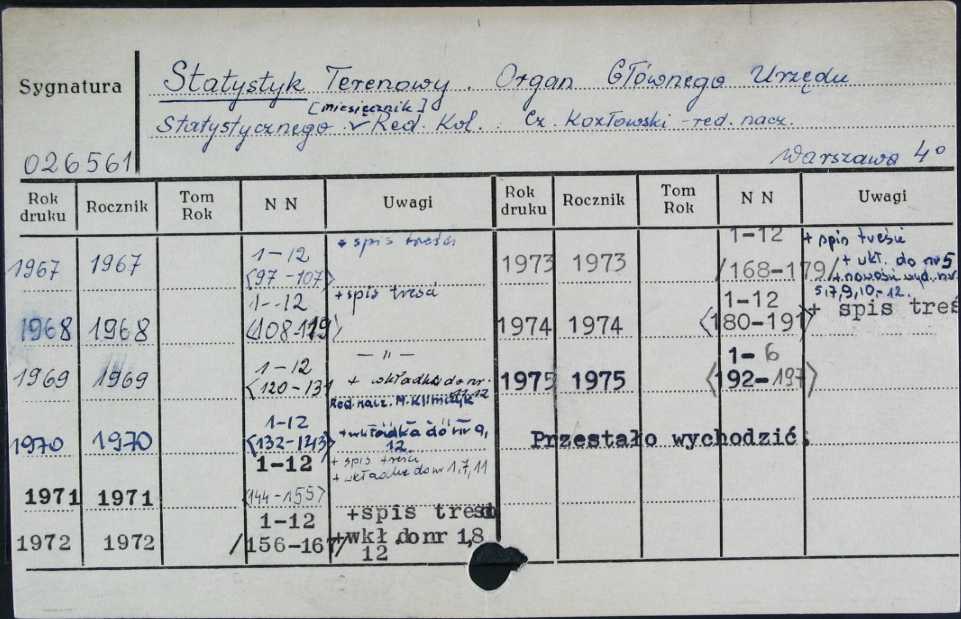 Sygnatura
Statystyk Terenowy. Organ Głównego Urzędu
[miesięcznik]
Statystycznego. Red. Kol. Cz. Kozłowski - red. nacz.
026561
Warszawa 4°
Rok druku Rocznik Tom Rok N N Uwagi
1967 1967 1-12 <97-107> + spis treści
1968 1968 1-12 <108-119> + spis treści
1969 1969 1-12 <120-131 — " — + wkładka do nr. 11.12
Red. nacz. M. Klimczyk
1970 1970 1-12 <132-143> + wkładka do nr 9, 12.
1971 1971 1-12 <144-155> + spis treści + wkładka do nr 1,7,11
1972 1972 1-12 /156-167/ +spis treści +wkł do nr 1,8 12
Rok druku Rocznik Tom Rok N N Uwagi
1973 1973 1-12 /168-179/ + spis treści + wkł. do nr 5 + nowości wyd. nr. 5,7,9,10,-12.
1974 1974 1-12 <180-191> + spis treś
1975 1975 1-6 <192-197>
Przestało wychodzić.